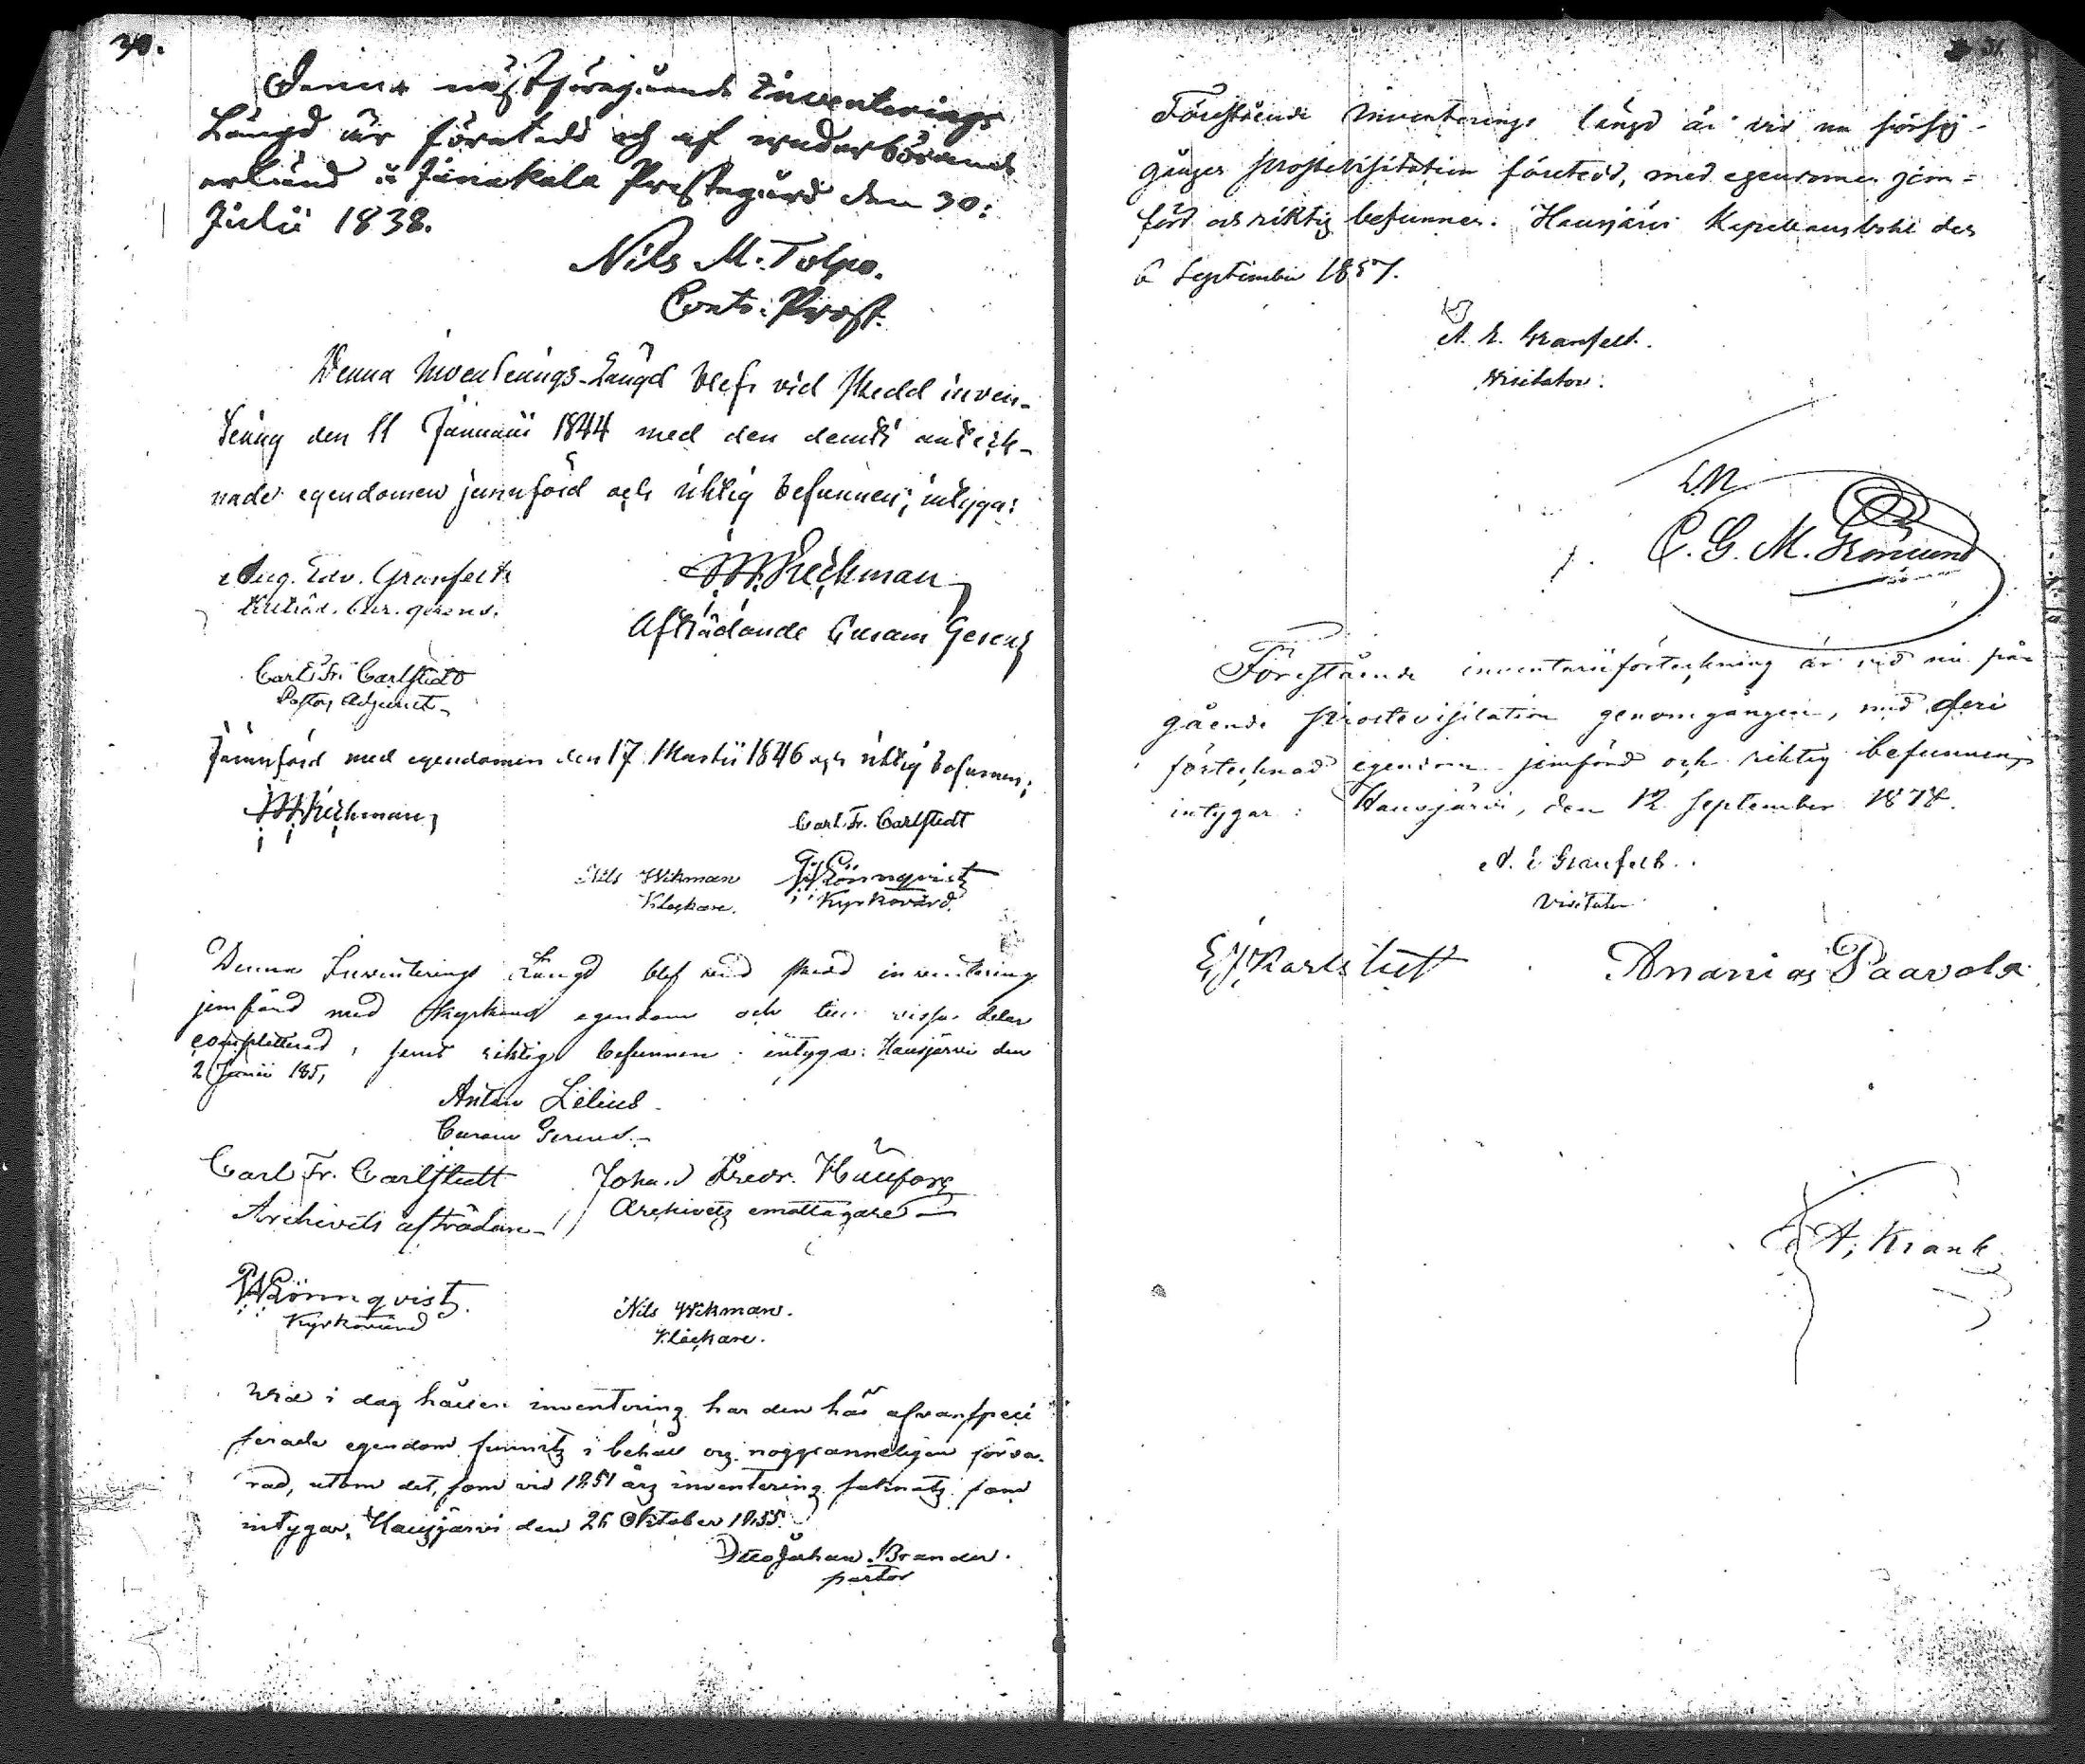 30.
Denna näst föregående Inventerings
Längd är företedd och af vederbörande
erkänd i Janakala Prestegård den 30:
Julii 1838.
Nils M. Tolpo.
Contr: Prost.
Denna Inventerings-Längd blef vid skedd inven-
tering den 11 Januarii 1844 med den deruti anteck-
nade egendomen jemnförd och riktig befunnen; intyga:
Aug. Edv. Granfelt
Tilträd. Cur. gerens.
Afträdande Curam Gerens
Carl Fr. Carlstedt
Pastors Adjunct
Jemnförd med egendomen den 17 Martii 1846 och riktig befunnen;
Carl Fr. Carlstedt
Nils Wikman
Klockare.
Rönnqvist
Kyrkovärd.
Denna Inventerings Längd blef vid skedd inventering
jemförd med Kyrkans egendom och till vissa delar
completterad, samt riktig befunnen: intyga: Hausjärvi den
2 Junii 1851
Anton Lilius
Curam Gerens.
Carl Fr. Carlstedt
Archivets afträdare
Johan Fredr.
Archivets emottagare
Rönnqvist
Kyrkovärd
Nils Wikman.
Klockare.
Wid i dag hållen inventering har den här ofvan speci
ferade egendom funnits i behåll och noggranneligen förva-
rad, utom det, som vid 1851 års inventering saknats som
intygar, Hausjärvi den 26 Oktober 1855.
Otto Johan Brander.
pastor
31.
Förestående Inventerings längd är vid nu försig-
gången prostevisitation företedd, med egendomen jem-
förd och riktig befunnen. Hausjärvi Kapellansbohl den
6 September 1857.
A. E. Granfelt.
Visitator.
C. G. M.
Förestående inventariiförteckning är vid nu på-
gående prostevisitation genomgången, med deri
förtecknad egendom jemförd och riktig befunnen,
intygar: Hausjärvi, den 12 September 1878.
A. E. Granfelt.
Visitator
Karlstedt
Ananias Paavola
A. Krank